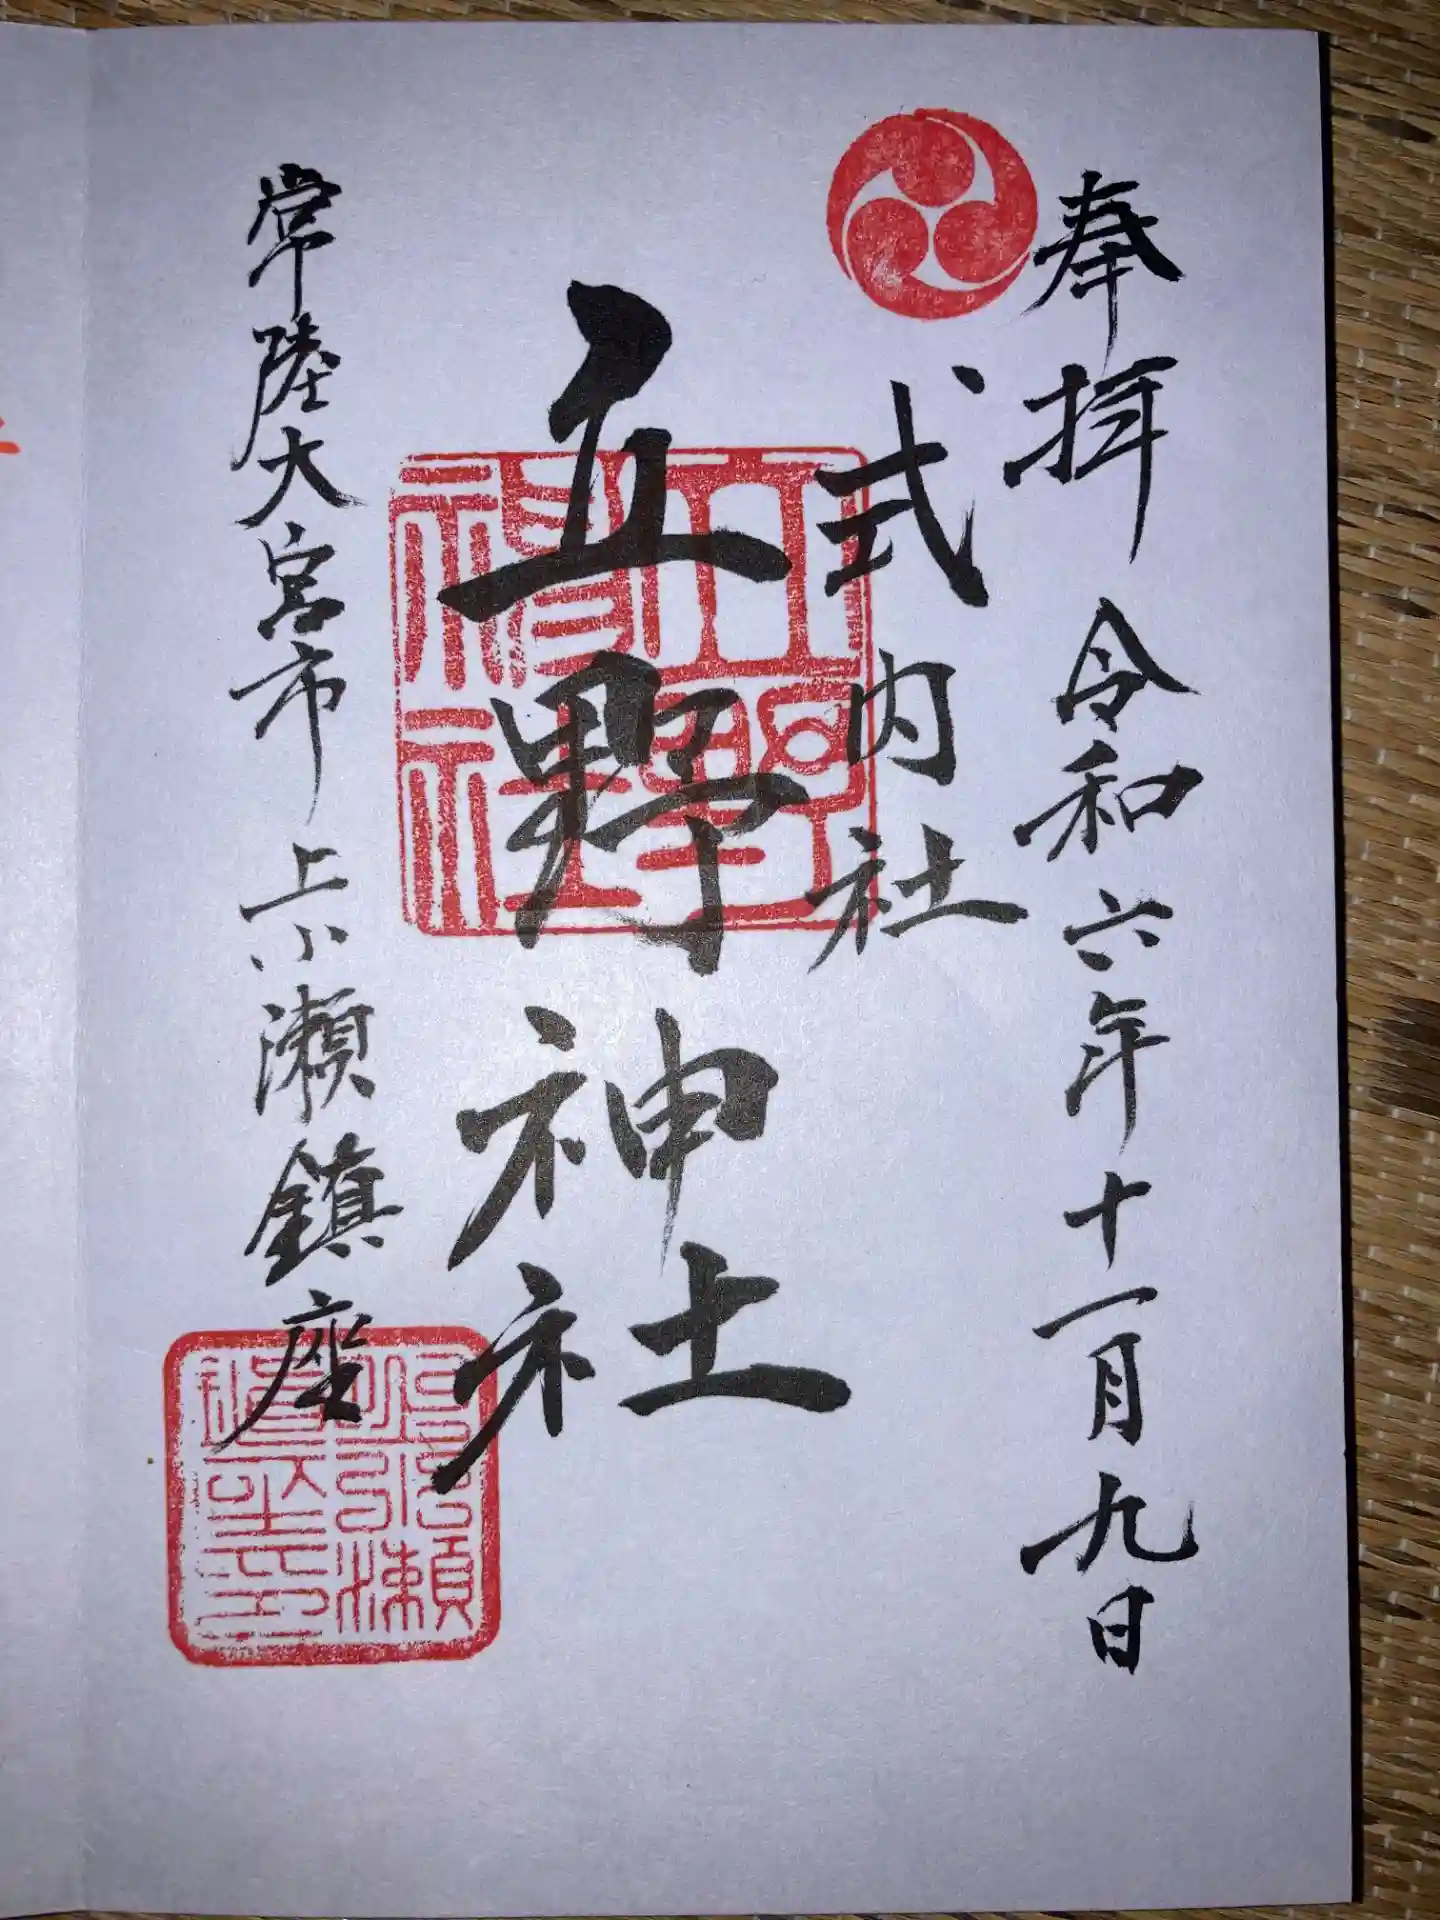 奉拝 令和六年十一月九日
式内社
立野神社
常陸大宮市上小瀬鎮座
立野神社